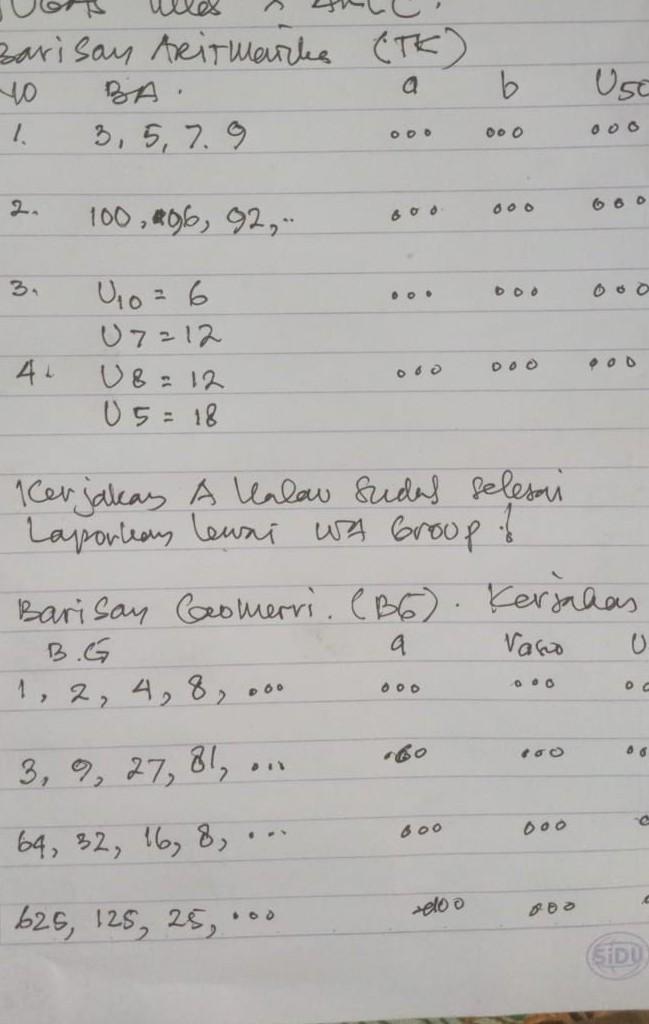 Barisan Aritmatika (TK)
NO BA. a b U50
1. 3, 5, 7. 9 ... ... ...
2. 100, 96, 92,.. ... ... ...
3. U10 = 6 ... ... ...
U7 = 12
4. U8 = 12 ... ... ...
U5 = 18
Kerjakan A kalau sudah selesai
Laporkan lewat WA Group !
Barisan Geometri. (BG). Kerjakan
B.G a rasio U
1, 2, 4, 8, ... ... ...
3, 9, 27, 81, ... ... ...
64, 32, 16, 8, ... ... ...
625, 125, 25, ... ... ...
SiDU